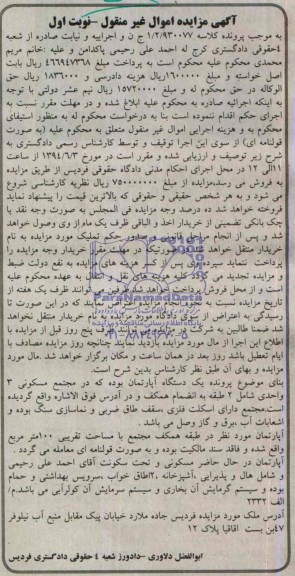 آگهی مزایده اموال غیر منقول –نوبت اول
به موجب پرونده کلاسه ۱/۲/۹۳۰۰۷۷ ح ن و اجرائیه و نیابت صادره از شعبه
۴حقوقی دادگستری کرج له احمد علی رحیمی پاکدامن و علیه :خانم مریم
محمدی محکوم علیه محکوم است به پرداخت مبلغ ۴۶۶۹۴۷۳۶۸ ریال بابت
اصل خواسته و مبلغ ۱۶۰۰۰۰۰ریال هزینه دادرسی و ۱۸۳۶۰۰۰ ریال حق
الوکاله در حق محکوم له و مبلغ ۱۵۷۲۰۰۰۰ ریال نیم عشر دولتی با توجه
به اینکه اجرائیه صادره به محکوم علیه ابلاغ شده و در مهلت مقرر نسبت به
اجرای حکم اقدام ننموده است بنا به درخواست محکوم له به منظور استیفای
محکوم به و هزینه اجرایی اموال غیر منقول متعلق به محکوم علیه (به صورت
قولنامه ای) از سوی این اجرا توقیف و توسط کارشناس رسمی دادگستری به
شرح زیر توصیف و ارزیابی شده و مقرر است در مورخ ۱۳۹۴/۶/۳ از ساعت
۱۱الی ۱۲ در محل اجرای احکام مدنی دادگاه حقوقی فردیس از طریق مزایده
به فروش می رسد.مزایده از مبلغ ۷۵۰۰۰۰۰۰۰ ریال نظریه کارشناسی شروع
می شود و به هر شخص حقیقی و حقوقی که بالاترین قیمت را پیشنهاد نماید
فروخته خواهد شد ده درصد وجه مزایده فی المجلس به صورت وجه نقد یا
چک بانکی تضمینی از خریدار اخذ و الباقی ظرف یک ماه از وی وصول خواهد
شد. پس از انجام مراحل قانونی و صدور حکم تملیک مورد مزایده به نام
خریدار منتقل خواهد شد. در صورتیکه در مهلت مقرر خریدار وجه مزایده را
پرداخت ننماید سپرده وی پس از کسر هزینه های مزایده به نفع دولت ضبط
و مزایده تجدید می گردد کلیه هزینه های نقل و انتقال به عهده محکوم علیه
است و از محل فروش پرداخت خواهد شد.طرفین می توانند ظرف یک هفته از
تاریخ مزایده نسبت به نحوه انجام مزایده اعتراض نمایند که در این صورت تا
رسیدگی به اعتراض از سوی دادگاه مورد مزایده به نام خریدار منتقل نخواهد
شد ضمنا طالبین به شرکت در مزایده می توانند ظرف پنج روز قبل از مزایده با
اطلاع این اجرا از مال مورد مزایده بازدید نمایند چنانچه روز مزایده مصادف با
ایام تعطیل باشد روز بعد در همان ساعت و مکان برگزار خواهد شد .مال مورد
مزایده و بهای آن طبق نظر کارشناس بدین شرح است.
بنای موضوع پرونده یک دستگاه آپارتمان بوده که در مجتمع مسکونی ۳
واحدی شامل ۲ طبقه به انضمام همکف و در آدرس فوق الاشاره واقع گردیده
است.مجتمع دارای اسکلت فلزی ،سقف طاق ضربی و نماسازی سنگ بوده و
اشعابات آب ،برق و گاز وصل می باشد .
آپارتمان مورد نظر در طبقه همکف مجتمع با مساحت تقریبی ۱۰۰متر مربع
واقع شده و فاقد سند مالکیت بوده و به صورت قولنامه ای معامله می گردد .
آپارتمان در حال حاضر مسکونی و تحت سکونت آقای احمد علی رحیمی
و شامل هال و پذیرایی ،آشپزخانه ،۲اطاق خواب ،سرویس بهداشتی و حمام
بوده و سیستم گرمایش آن بخاری و سیستم سرمایش آن کولرآبی می باشد.م/
الف ۲۳۳۲
آدرس ملک مورد مزایده فردیس جاده ملارد خیابان پیک مقابل منبع آب نیلوفر
۴۷بن بست اقاقیا پلاک ۱۲
ابوالفضل دلاوری –دادورز شعبه ۴ حقوقی دادگستری فردیس
ParsNamadData